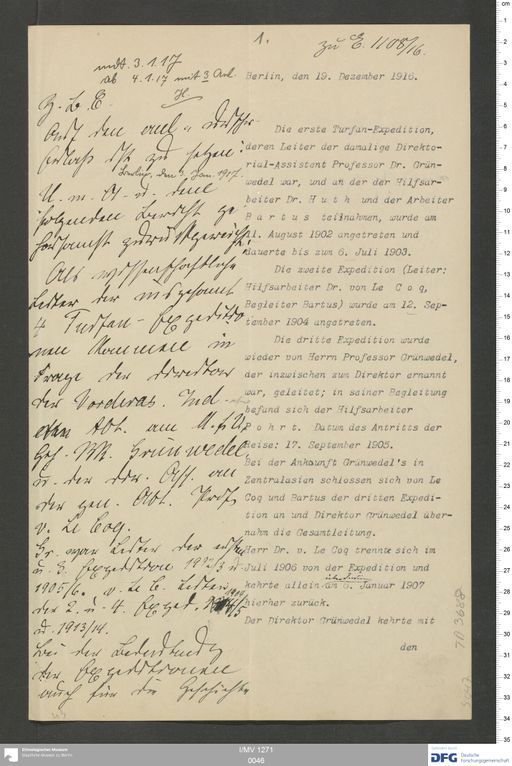 1.
zu E. 1108/16.
mdt. 3.1.17
ab 4.1.17 mit 3 Anl.
Berlin, den 19. Dezember 1916.
Die erste Turfan-Expedition,
deren Leiter der damalige Direkto-
rial-Assistent Professor Dr. Grün-
wedel war, und an der der Hilfsar-
beiter Dr. Huth und der Arbeiter
Bartus teilnahmen, wurde am
11. August 1902 angetreten und
dauerte bis zum 6. Juli 1903.
Die zweite Expedition (Leiter:
Hilfsarbeiter Dr. von Le Coq,
Begleiter Bartus) wurde am 12. Sep-
tember 1904 angetreten.
Die dritte Expedition wurde
wieder von Herrn Professor Grünwedel,
der inzwischen zum Direktor ernannt
war, geleitet; in seiner Begleitung
befand sich der Hilfsarbeiter
Pohrt. Datum des Antritts der
Reise: 17. September 1905.
Bei der Ankaunft Grünwedel's in
Zentralasien schlossen sich von Le
Coq und Bartus der dritten Expedi-
tion an und Direktor Grünwedel über-
nahm die Gesamtleitung.
Herr Dr. v. Le Coq trennte sich im
Juli 1906 von der Expedition und
kehrte allein am 6. Januar 1907
hierher zurück.
Der Direktor Grünwedel kehrte mit
den
Z. L. E.
zu setzen:
Berlin, den 3. Jan. 1917.
folgenden Bericht ge-
Als wissenschaftliche
Leiter der insgesamt
4 Turfan-Expeditio-
nen kommen in
Frage der Direktor
der Vorderas. Ind.
Abt. am M. f. V.
Geh. Grünwedel
u. der Dir. Ass. an
der gen. Abt. Prof.
v. Le Coq.
Gr. war Leiter der ersten
u. 3. Expedition 1902/3 u.
1905/6, v. Le C. Leiter
der 2. u. 4. Exped. 1904/5
u. 1913/14.
Bei der Bedeutung
der Expeditionen
auch für die Geschichte
7A 3688
Ethnologisches Museum
Staatliche Museen zu Berlin
I/MV 1271
0046
DFG
Deutsche
Forschungsgemeinschaft